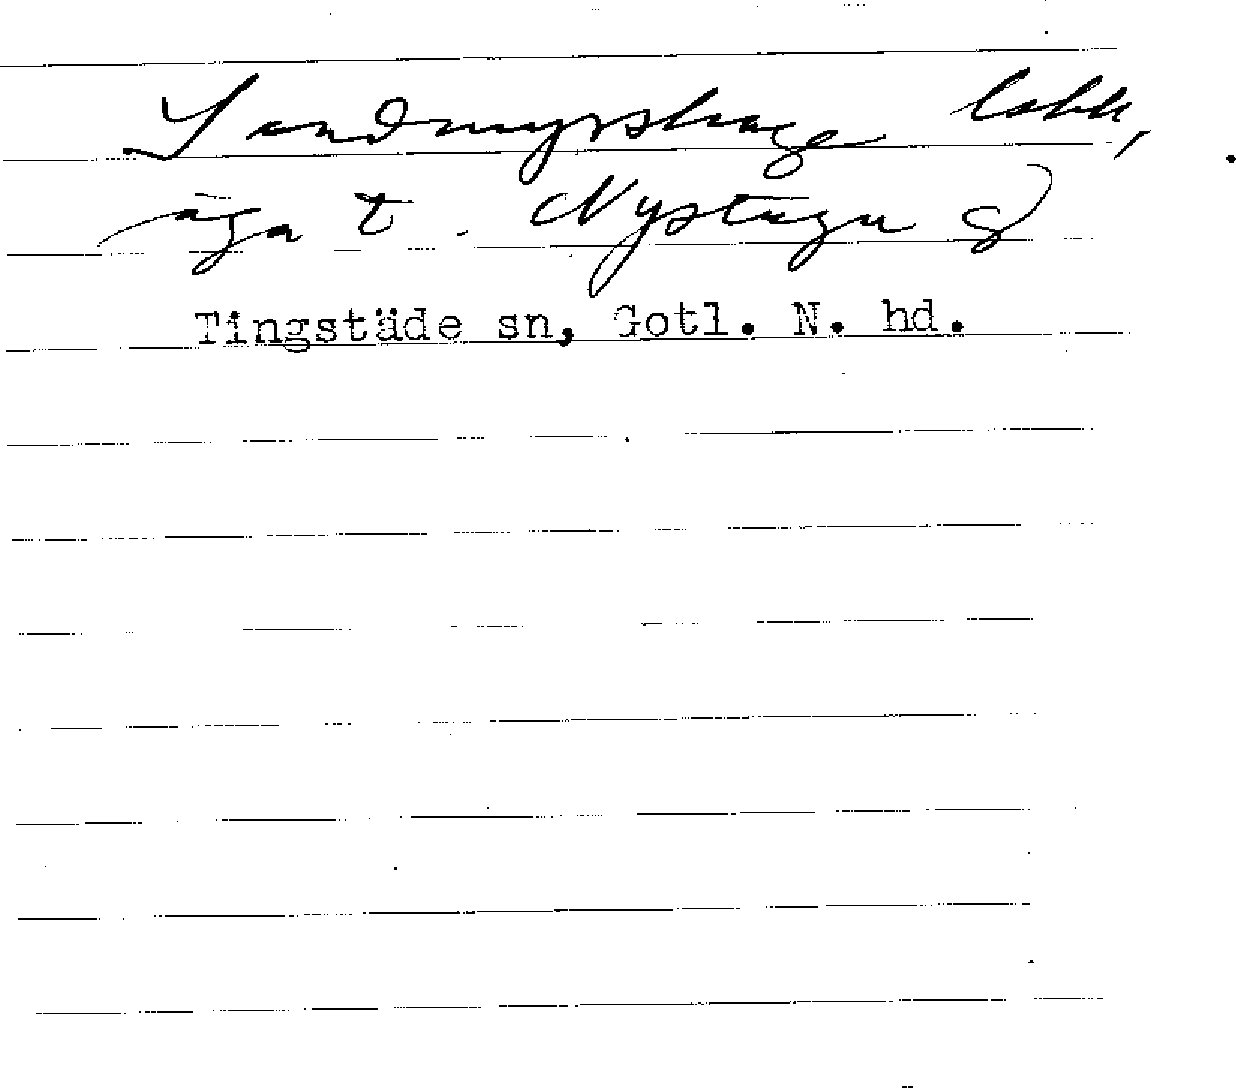 Sandmyrshage lokk,
äga t. Nystugu g
Tingstäde sn, Gotl. N. hd.